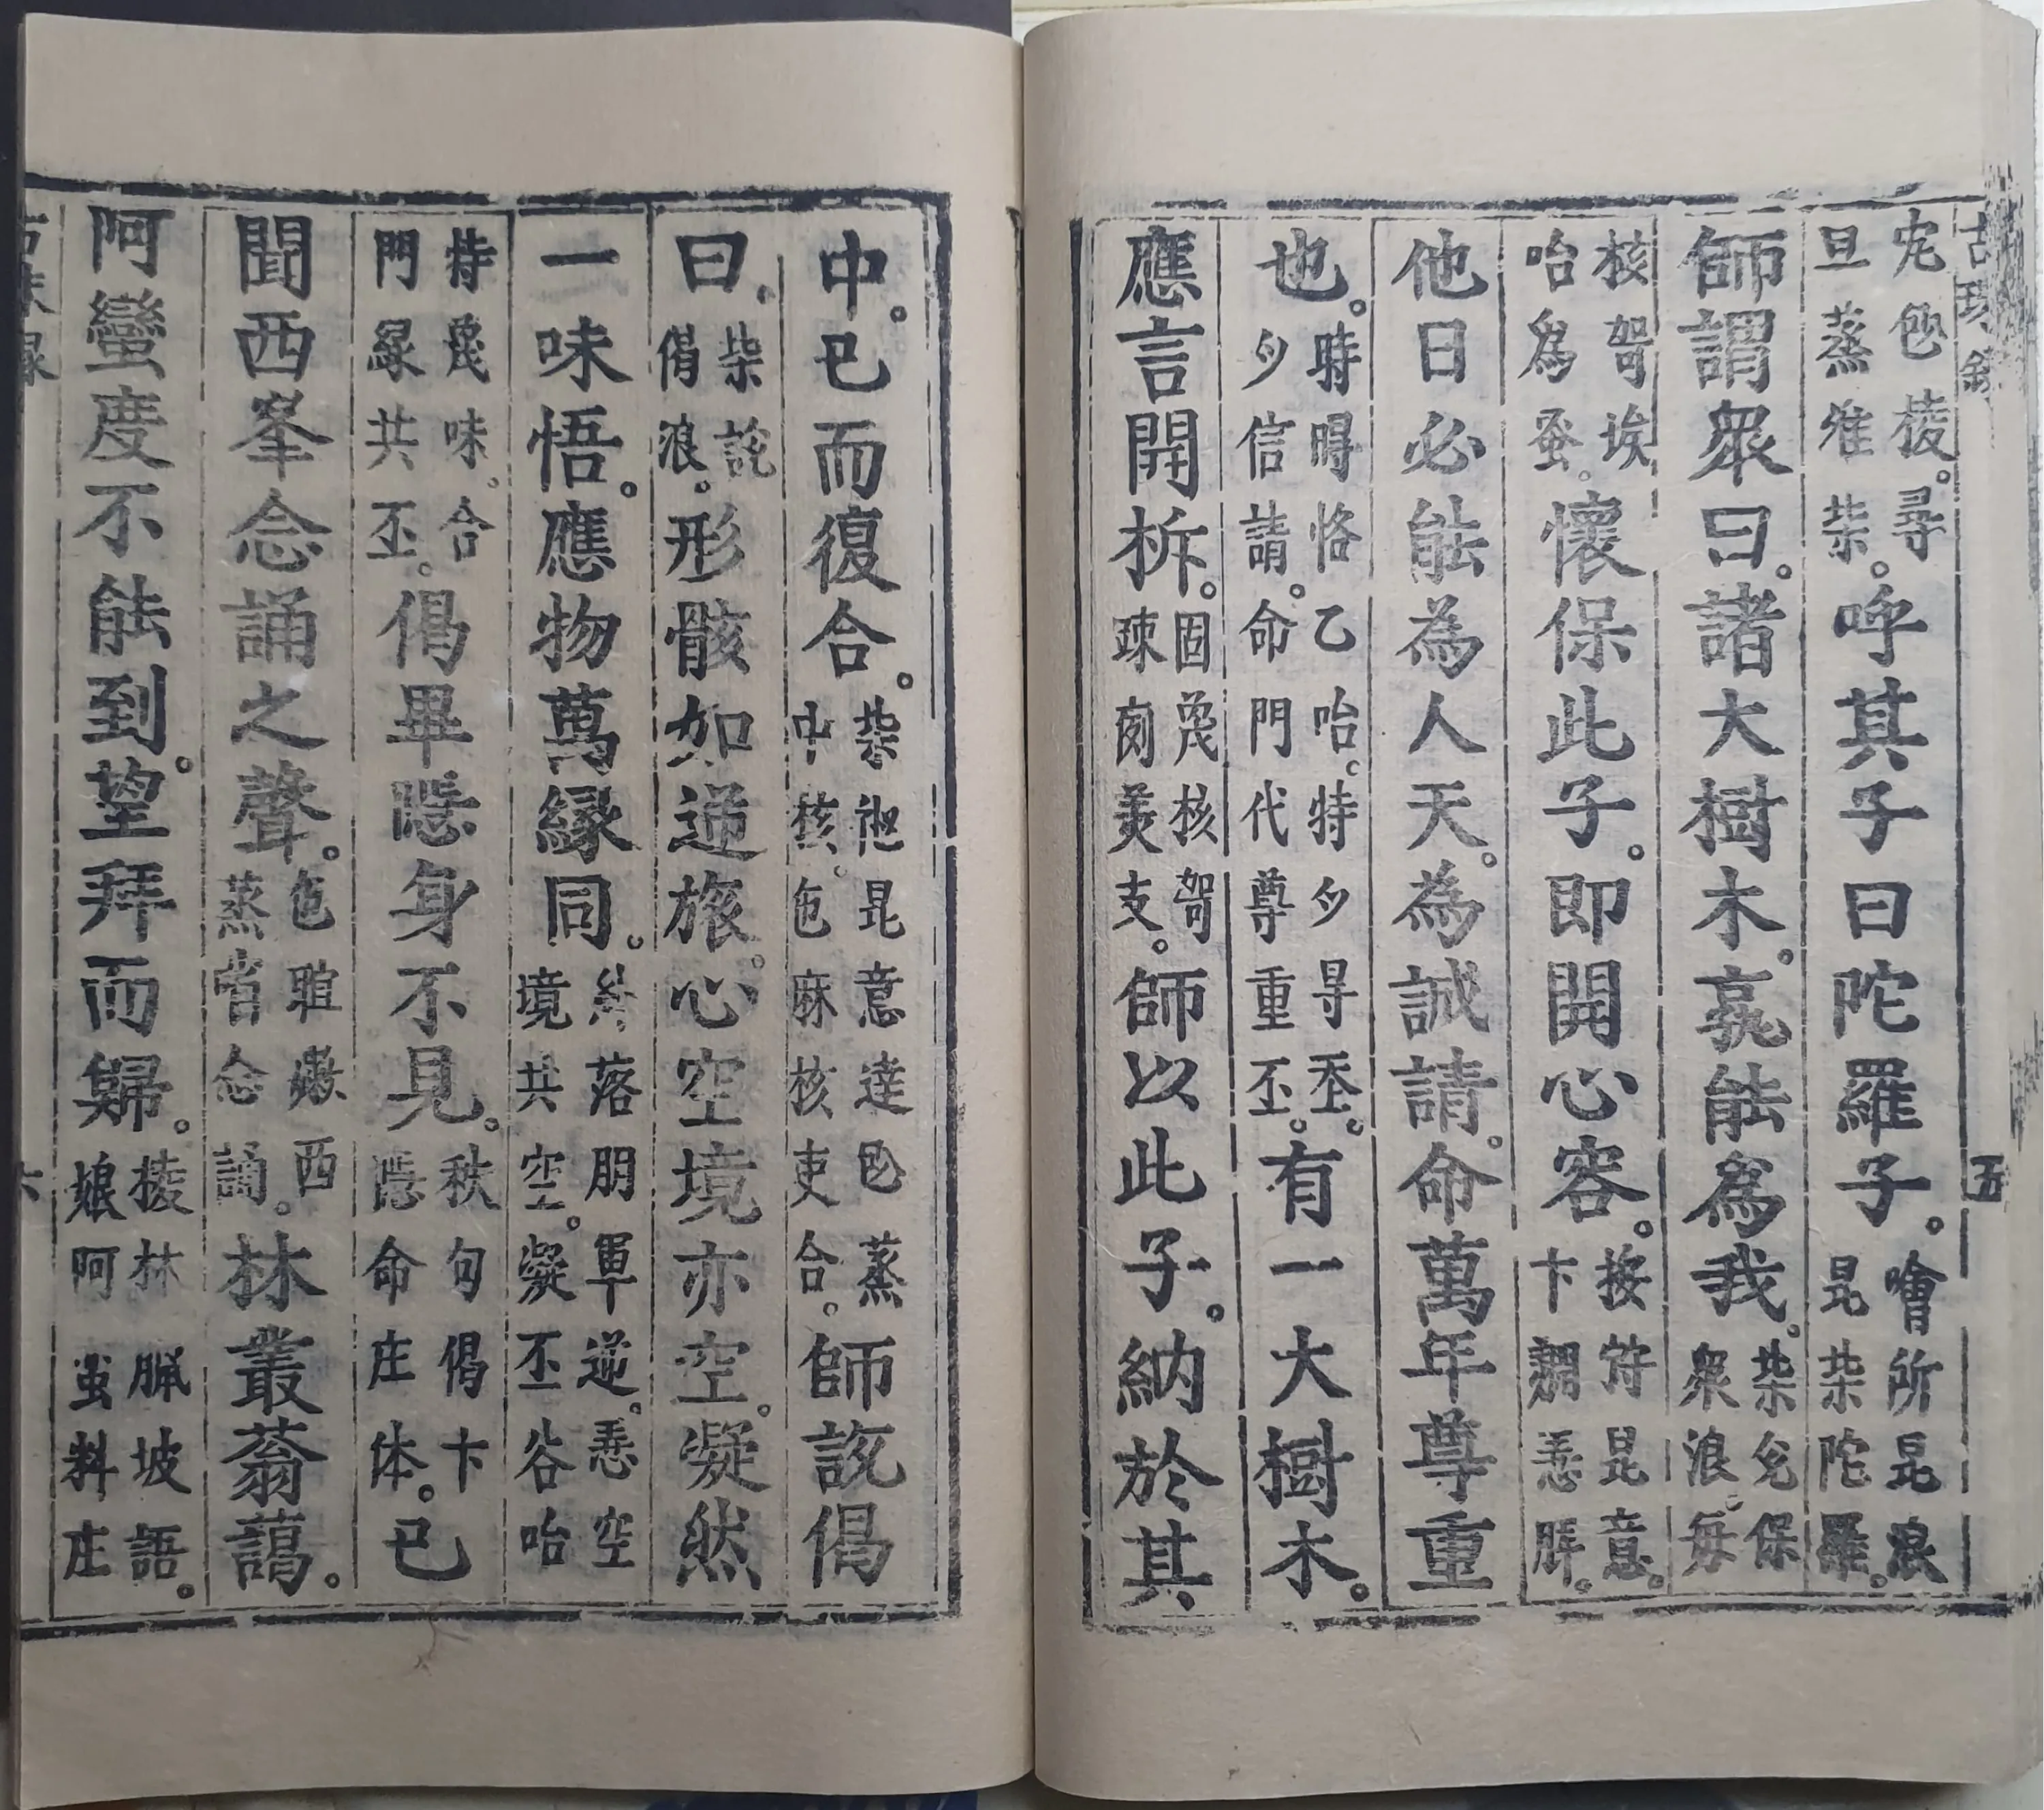 古珠錄 五
包稜。尋旦蒸雅柴。呼其子曰陀羅子。噲所昆浪昆柴陀羅。
師謂衆曰。諸大樹木。孰能為我。柴兊保衆浪。每
核哿埃咍爲蚤。懷保此子。即開心容。按符昆意。卞悉
他日必能為人天。為誠請。命萬年尊重
也。時㫭恪乙咍。特𠃣㝵丕。𠃣信請。命門代尊重丕。有一大樹木。
應言開柝。固㡬核哿疎美支。師以此子。納於其
中。已而復合。柴昆意達蒸中核。包麻核吏合。師説偈
曰。柴説偈浪。形骸如逆旅。心空境亦空。凝然
一味悟。應物萬縁同。落朋軍逆。悉空境共空。凝丕谷咍
特㡬味。合門縁共丕。偈畢隠身不見。秩句偈卞隠命庄体。已
聞西峯念誦之聲。包西蒸嘗念誦。林叢蓊藹。
阿蠻度不能到。望拜而歸。稜林坡語。娘阿虽料庄
古珠録 六